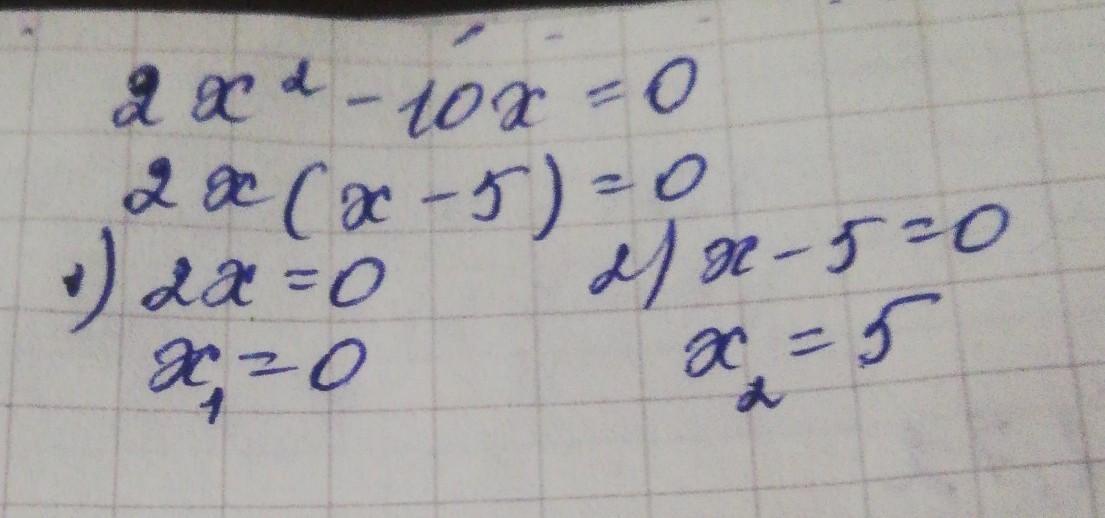 2x² - 10x = 0
2x(x - 5) = 0
1) 2x = 0 2) x - 5 = 0
x₁ = 0 x₂ = 5